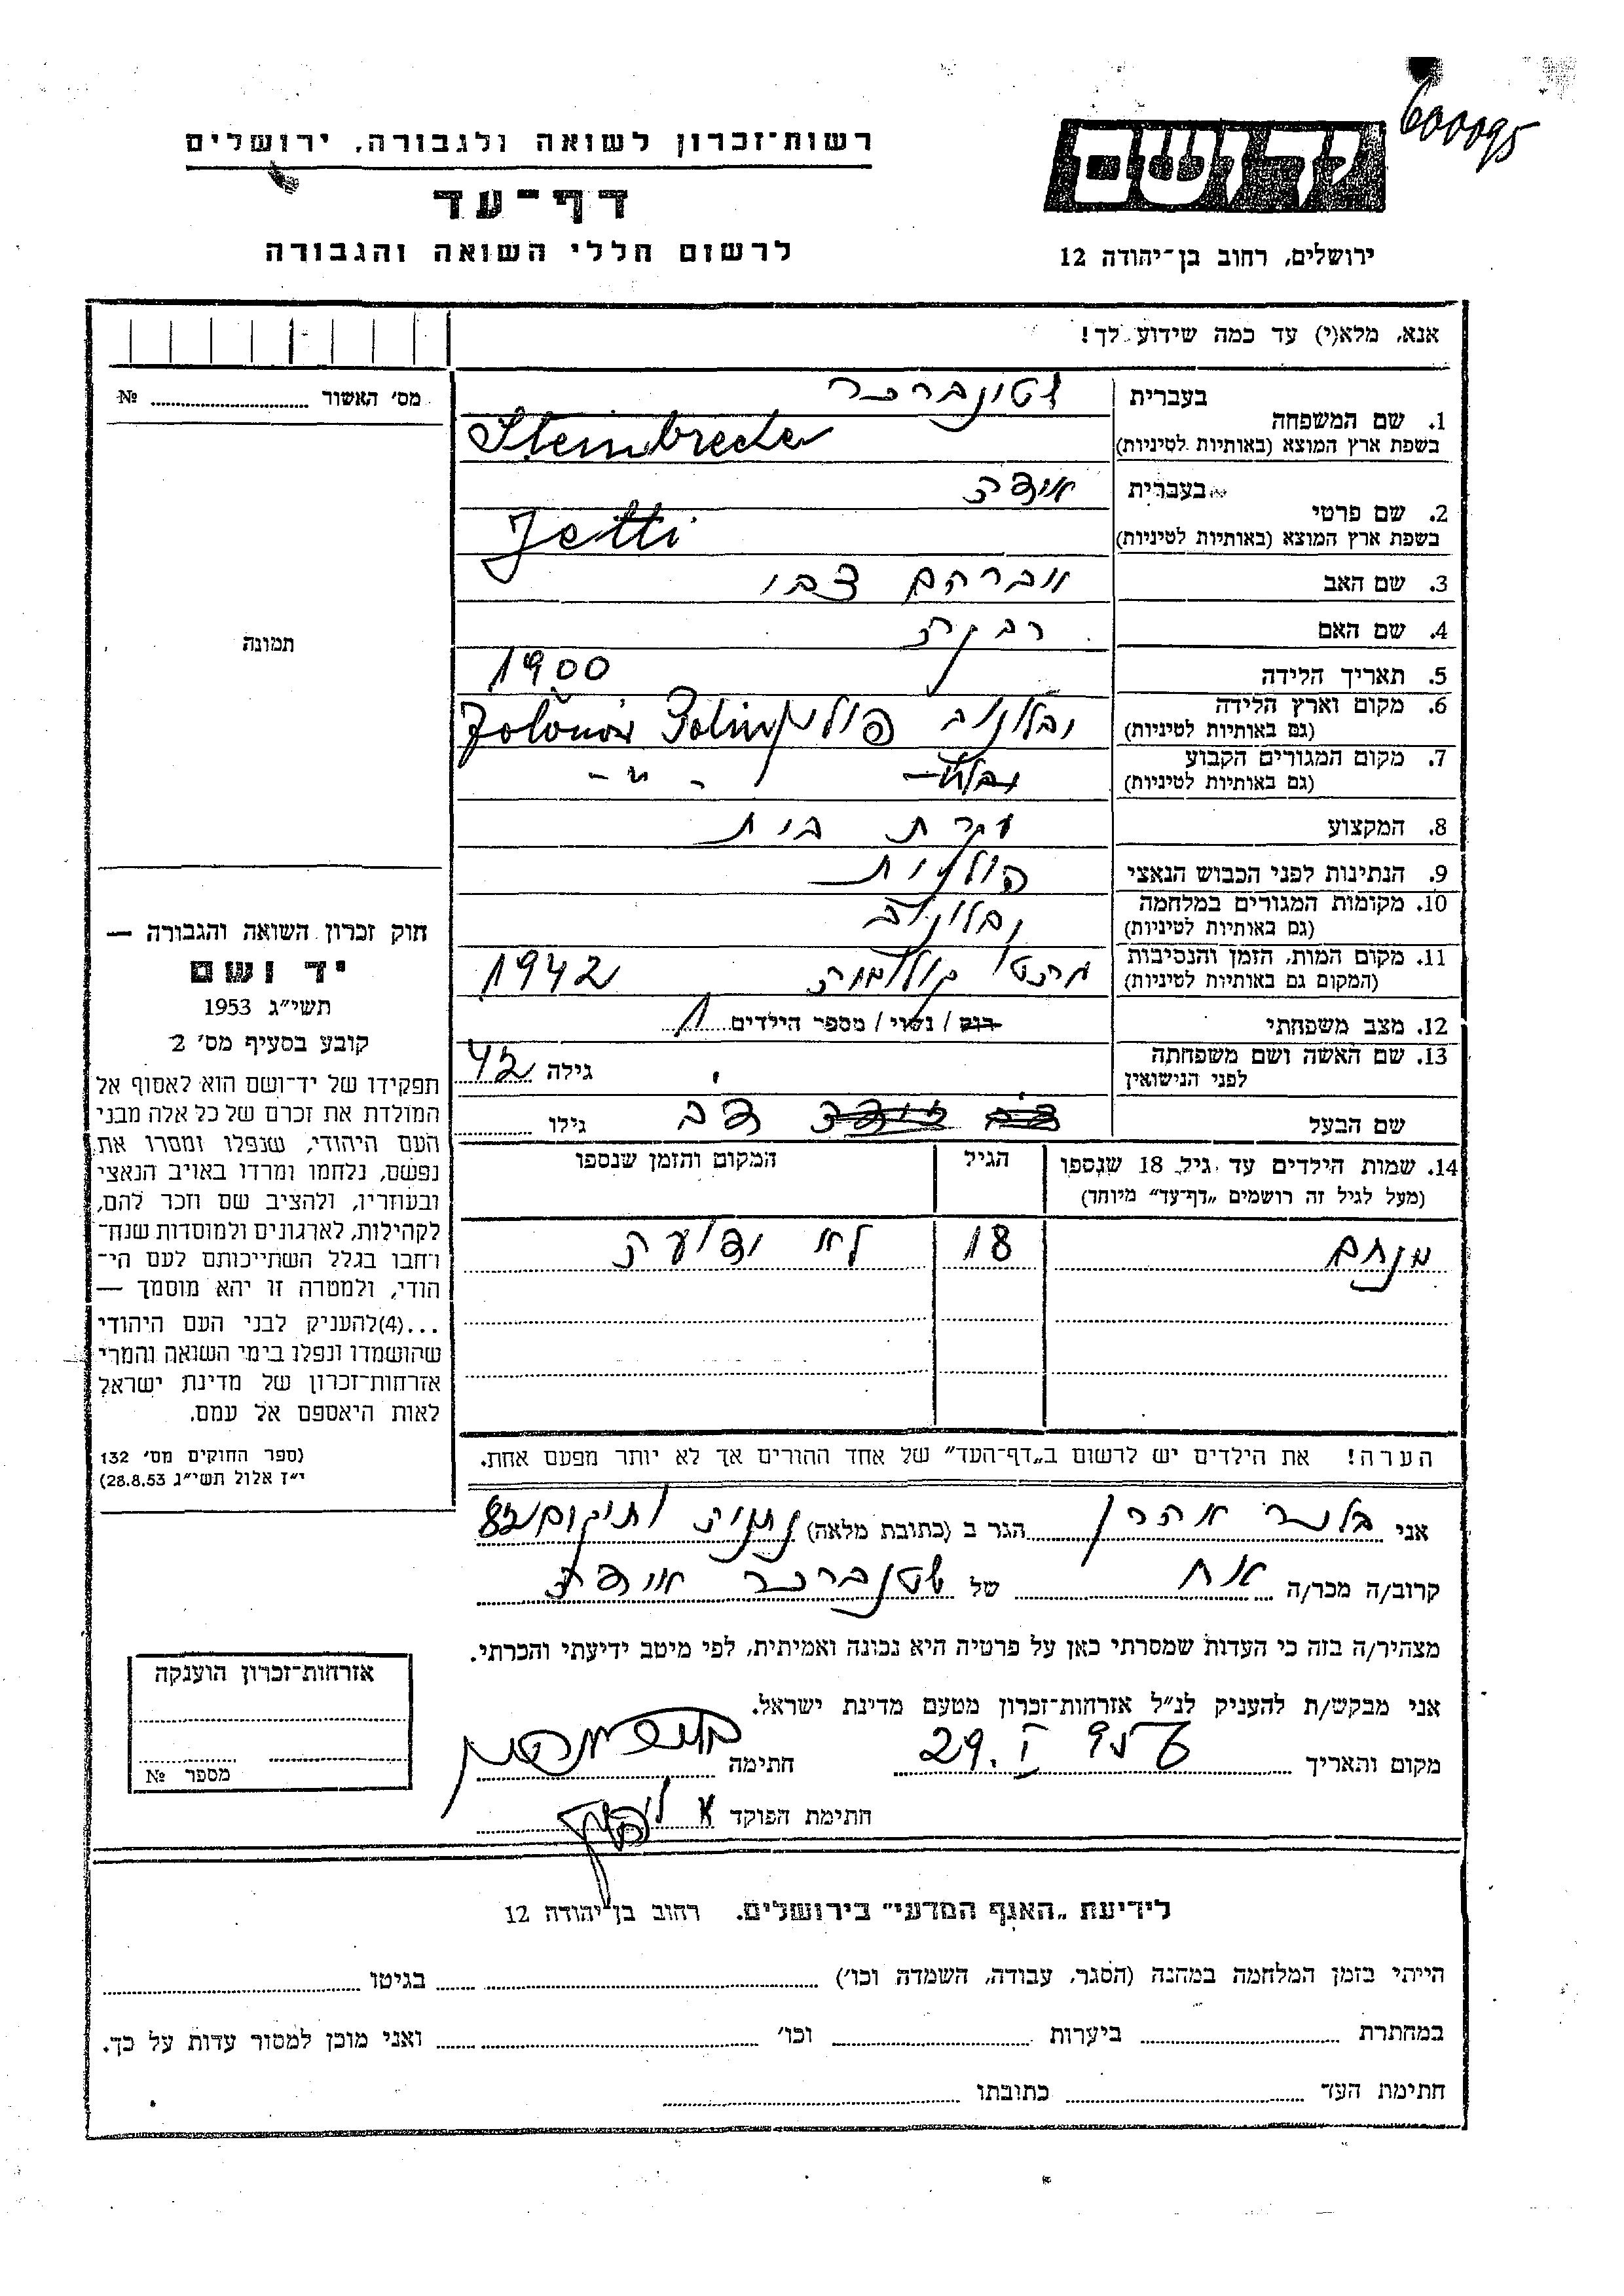 600095
רשות־זכרון לשואה ולגבורה, ירושלים
דף־עד
לרשום חללי השואה והגבורה
יד ושם
ירושלים, רחוב בן־יהודה 12
אנא, מלא(י) עד כמה שידוע לך!
מס׳ האשור № 
תמונה
1. שם המשפחה
בעברית שטינברכר
בשפת ארץ המוצא (באותיות לטיניות) Steinbrecher
2. שם פרטי
בעברית
בשפת ארץ המוצא (באותיות לטיניות) Jetti
3. שם האב אברהם צבי
4. שם האם רבקה
5. תאריך הלידה 1900
6. מקום וארץ הלידה
(גם באותיות לטיניות) יבלונוב
7. מקום המגורים הקבוע
(גם באותיות לטיניות) - " -
8. המקצוע עקרת בית
9. הנתינות לפני הכבוש הנאצי פולנית
10. מקומות המגורים במלחמה
(גם באותיות לטיניות) יבלונוב
11. מקום המות, הזמן והנסיבות
(המקום גם באותיות לטיניות) 1942
12. מצב משפחתי רוק / נשוי / מספר הילדים 1
13. שם האשה ושם משפחתה
לפני הנישואין גילה 42
שם הבעל דב גילו
14. שמות הילדים עד גיל 18 שנספו
(מעל לגיל זה רושמים „דף־עד” מיוחד)
הגיל
המקום והזמן שנספו
מנחם 18 לא ידוע
הערה! את הילדים יש לרשום ב„דף־העד” של אחד ההורים אך לא יותר מפעם אחת.
חוק זכרון השואה והגבורה —
יד ושם
תשי״ג 1953
קובע בסעיף מס׳ 2
תפקידו של יד־ושם הוא לאסוף אל
המולדת את זכרם של כל אלה מבני
העם היהודי, שנפלו ומסרו את
נפשם, נלחמו ומרדו באויב הנאצי
ובעוזריו, ולהציב שם וזכר להם,
לקהילות, לארגונים ולמוסדות שנח־
רחבו בגלל השתייכותם לעם הי־
הודי, ולמטרה זו יהא מוסמך —
...(4)להעניק לבני העם היהודי
שהושמדו ונפלו בימי השואה והמרי
אזרחות־זכרון של מדינת ישראל
לאות היאספם אל עמם.
(ספר החוקים מס׳ 132
י״ז אלול תשי״ג 28.8.53)
אני אהרן הגר ב (כתובת מלאה)
קרוב/ה מכר/ה אח של שטנברכר
מצהיר/ה בזה כי העדות שמסרתי כאן על פרטיה היא נכונה ואמיתית, לפי מיטב ידיעתי והכרתי.
אני מבקש/ת להעניק לנ״ל אזרחות־זכרון מטעם מדינת ישראל.
מקום והתאריך 29.I חתימה
חתימת הפוקד
אזרחות־זכרון הוענקה
מספר №
לידיעת „האגף המדעי” בירושלים. רחוב בן־יהודה 12
הייתי בזמן המלחמה במחנה (הסגר, עבודה, השמדה וכו׳) בגיטו
במחתרת ביערות וכו׳ ואני מוכן למסור עדות על כך.
חתימת העד כתובתו